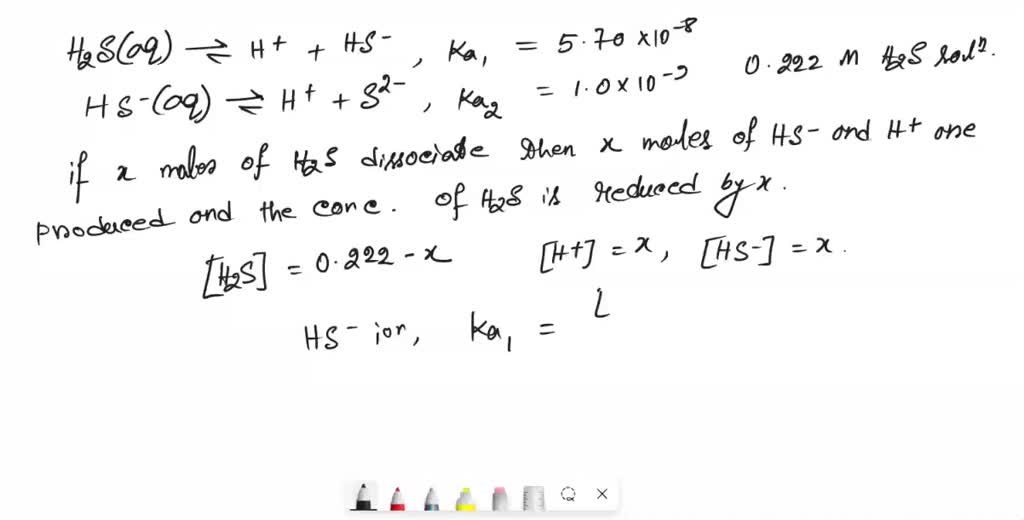 H₂S(aq) ⇌ H⁺ + HS⁻ , Ka₁ = 5.70 × 10⁻⁸
HS⁻(aq) ⇌ H⁺ + S²⁻ , Ka₂ = 1.0 × 10⁻⁹ 0.222 M H₂S solⁿ.
if x moles of H₂S dissociate then x moles of HS⁻ and H⁺ are
produced and the conc. of H₂S is reduced by x.
[H₂S] = 0.222 - x [H⁺] = x, [HS⁻] = x.
HS⁻ ion, Ka₁ = [